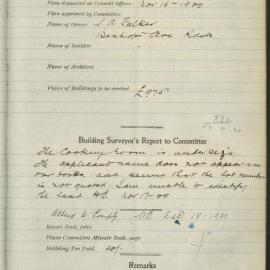 Plan deposited at Council Offices Nov 16-1920
Plan approved by Committee
Name of Owner S. A. Fulker
Bishops Ave
Name of Builder
Name of Architect
Value of Buildings to be erected £975
Building Surveyor's Report to Committee
The Cooking Room is undersize
The applicant name does not appear in
our books and seems that the lot number
is not quoted I am unable to identify
the land Nov 17-20
Report Book, folio
Plans Committee Minute Book, page
Building Fee Paid 20/-
Remarks